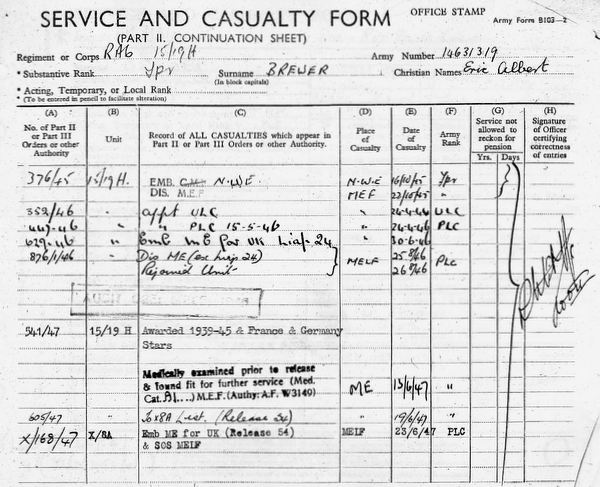 SERVICE AND CASUALTY FORM
OFFICE STAMP
Army Form B103—2
(PART II. CONTINUATION SHEET)
Regiment or Corps RAC 15/19H Army Number 14631319
* Substantive Rank Tpr Surname BREWER Christian Names Eric Albert
(In block capitals)
* Acting, Temporary, or Local Rank
* (To be entered in pencil to facilitate alteration)
(A) (B) (C) (D) (E) (F) (G) (H)
No. of Part II or Part III Orders or other Authority
Unit
Record of ALL CASUALTIES which appear in Part II or Part III Orders or other Authority.
Place of Casualty
Date of Casualty
Army Rank
Service not allowed to reckon for pension
Yrs. Days
Signature of Officer certifying correctness of entries
376/45 15/19 H. EMB. N.W.E N.W.E 16/10/45 Tpr
DIS. M.E.F MEF 22/10/45 "
352/46 " appt ULC " 24-4-46 ULC
447-46 " " PLC 15-5-46 " 24-4-46 PLC
629-46 " Emb ME for UK Liap. 24 " 30-6-46
876/1/46 " Dis ME (ex Liap 24) MELF 25 8/46 PLC
Rejoined Unit 26 8/46
541/47 15/19 H Awarded 1939-45 & France & Germany
Stars
Medically examined prior to release
& found fit for further service (Med.
Cat. ....) M.E.F. (Authy: A.F. W3149) ME 13/6/47 "
605/47 To X8A List. (Release 54) " 19/6/47 "
X/168/47 X/8A Emb ME for UK (Release 54) MELF 23/6/47 PLC
& SOS MELF